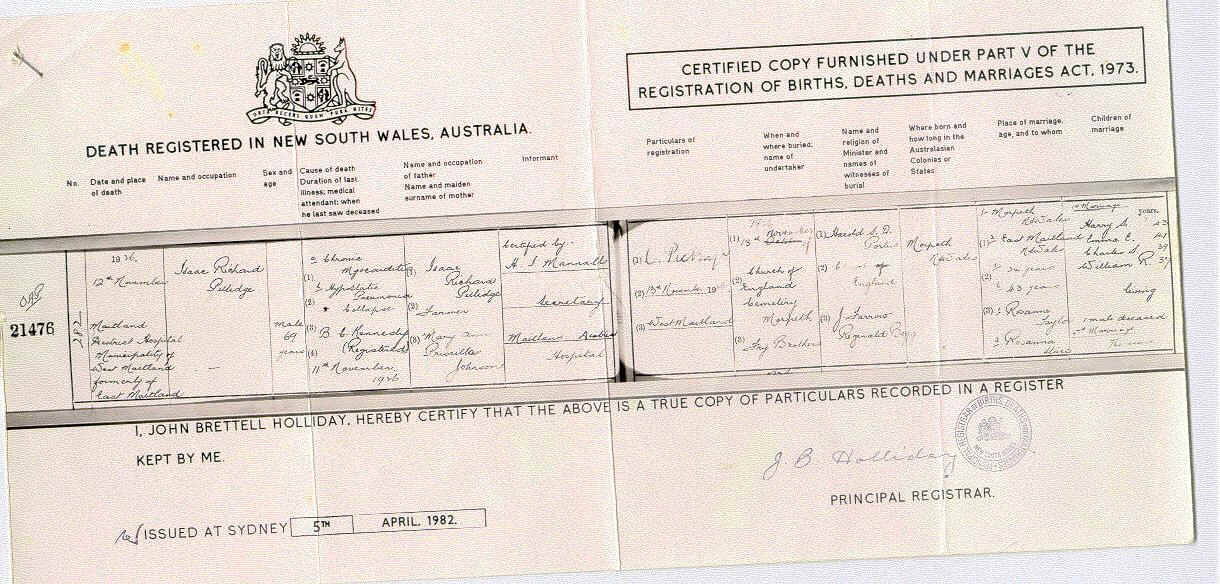 CERTIFIED COPY FURNISHED UNDER PART V OF THE
REGISTRATION OF BIRTHS, DEATHS AND MARRIAGES ACT, 1973.
DEATH REGISTERED IN NEW SOUTH WALES, AUSTRALIA.
No.
Date and place
of death
Name and occupation
Sex and
age
Cause of death
Duration of last
illness; medical
attendant; when
he last saw deceased
Name and occupation
of father
Name and maiden
surname of mother
Informant
Particulars of
registration
When and
where buried,
name of
undertaker
Name and
religion of
Minister and
names of
witnesses of
burial
Where born and
how long in the
Australasian
Colonies or
States
Place of marriage,
age, and to whom
Children of
marriage
21476
282
1926
12th November
Maitland
District Hospital
Municipality of
West Maitland
formerly of
East Maitland
Isaac Richard
Pillidge
—
Male
69
years
a Chronic
(1) Myocarditis
b Hypostatic
(2) Pneumonia
Collapse
(3)
(Registered)
(4)
11th November
1926
(1) Isaac
Richard
Pillidge
(2) Farmer
(3) Mary Ann
Priscilla
Johnson
Certified by:-
Secretary
Maitland District
Hospital
(1)
(2) 13th November 1926
(3) West Maitland
(1) 13th November
Church of
(2) England
Cemetery
Morpeth
(3) Fry Brothers
(1) Harold
(2) of
England
(3) J. Farrow
Reginald
Morpeth
N.S.Wales
1 Morpeth
N.S.Wales
(1) 2 East Maitland
N.S.Wales
(2) years
53 years
(3) 1 Rosanna
Taylor
2 Rosanna
1st Marriage
years.
Harry
Emma E. 41
Charles S. 39
William R. 37
living
1 male deceased
2nd Marriage
I, JOHN BRETTELL HOLLIDAY, HEREBY CERTIFY THAT THE ABOVE IS A TRUE COPY OF PARTICULARS RECORDED IN A REGISTER
KEPT BY ME.
J. B. Holliday
PRINCIPAL REGISTRAR.
ISSUED AT SYDNEY 5TH APRIL, 1982.